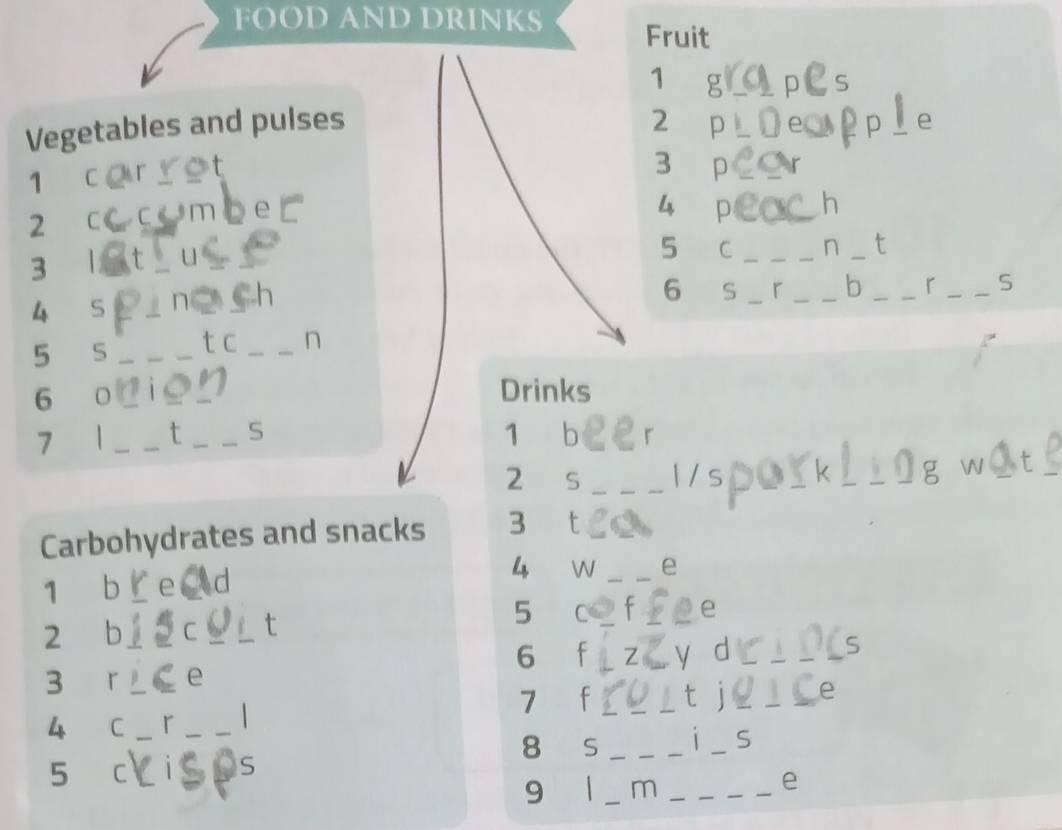 FOOD AND DRINKS
Vegetables and pulses
1 carrot
2 cucumber
3 lettuce
4 spinach
5 s _ _ _ t c _ _ n
6 onion
7 l _ _ t _ _ s
Carbohydrates and snacks
1 bread
2 biscuit
3 rice
4 c _ r _ _ l
5 crisps
Fruit
1 grapes
2 pineapple
3 pear
4 peach
5 c _ _ _ n _ t
6 s _ r _ _ b _ _ r _ _ s
Drinks
1 beer
2 s _ _ _ l / sparkling wate
3 tea
4 w _ _ e
5 coffee
6 fizzy d
7 fruit juice
8 s _ _ _ i _ s
9 l _ m _ _ _ _ e